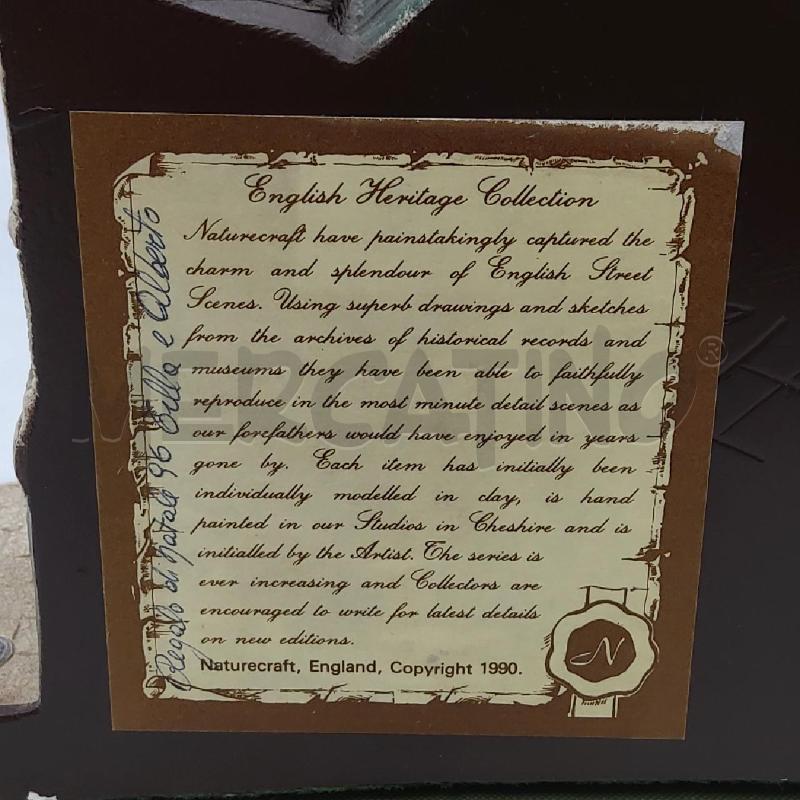 English Heritage Collection
Naturecraft have painstakingly captured the
charm and splendour of English Street
Scenes. Using superb drawings and sketches
from the archives of historical records and
museums they have been able to faithfully
reproduce in the most minute detail scenes as
our forefathers would have enjoyed in years
gone by. Each item has initially been
individually modelled in clay, is hand
painted in our Studios in Cheshire and is
initialled by the Artist. The series is
ever increasing and Collectors are
encouraged to write for latest details
on new editions.
Naturecraft, England, Copyright 1990.
N
Regalo di Natale 96 e Alberto
MERCATINO®